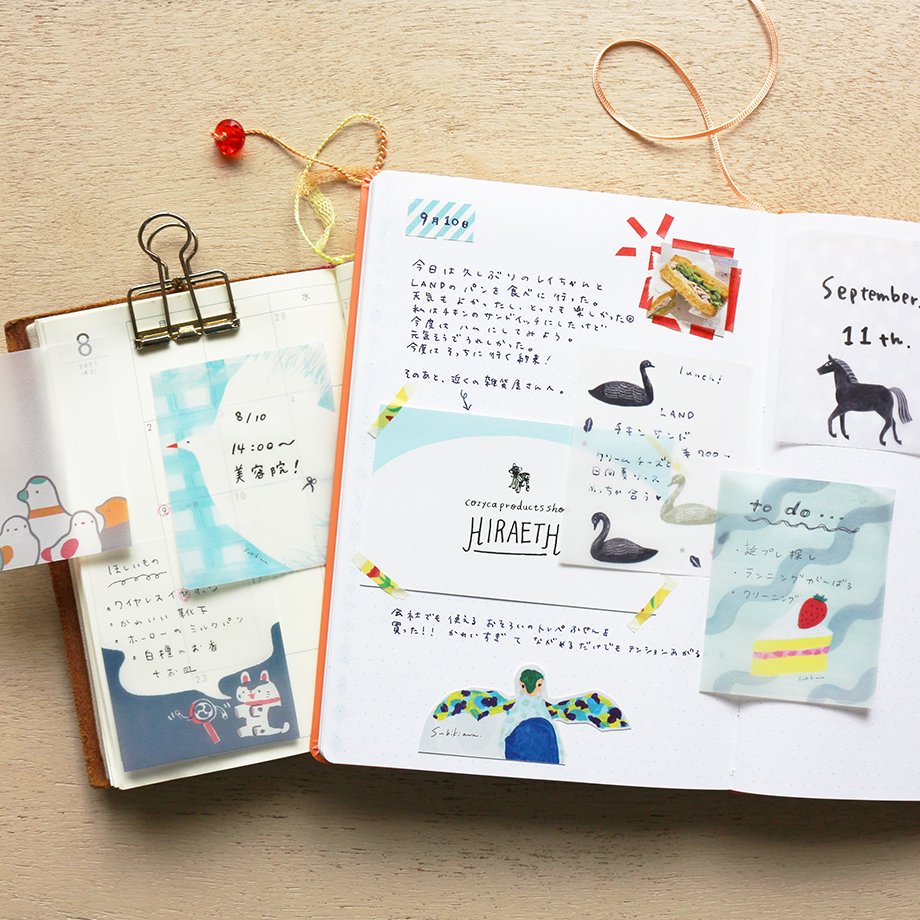 8
2021
水
28
2
9
10
8/10
14:00〜
美容院!
ほしいもの
・ワイヤレスイヤホン
・かわいい靴下
・ホーローのミルクパン
・白檀のお香
さお皿
23
9月10日
今日は久しぶりのレイちゃんと
LANDのパンを食べに行った。
天気もよかったし、とっても楽しかった
私はチキンのサンドイッチにしたけど
今度はハムにしてみよう。
元気そうでうれしかった。
今度はそっちに行く約束!
そのあと、近くの雑貨屋さんへ。
cozyca products sho
HIRAETH
lunch!
LAND
チキンサンド
¥700→
クリームチーズと
日向夏ソース
めっちゃ合う♥
会社でも使えるおそろいのトレペふせんを
買った!!かわいすぎてながめるだけでもテンションあがる
Subikiawa.
September,
11th.
to do...
・誕プレ探し
・ランニングがんばる
・クリーニング
Subikiawa